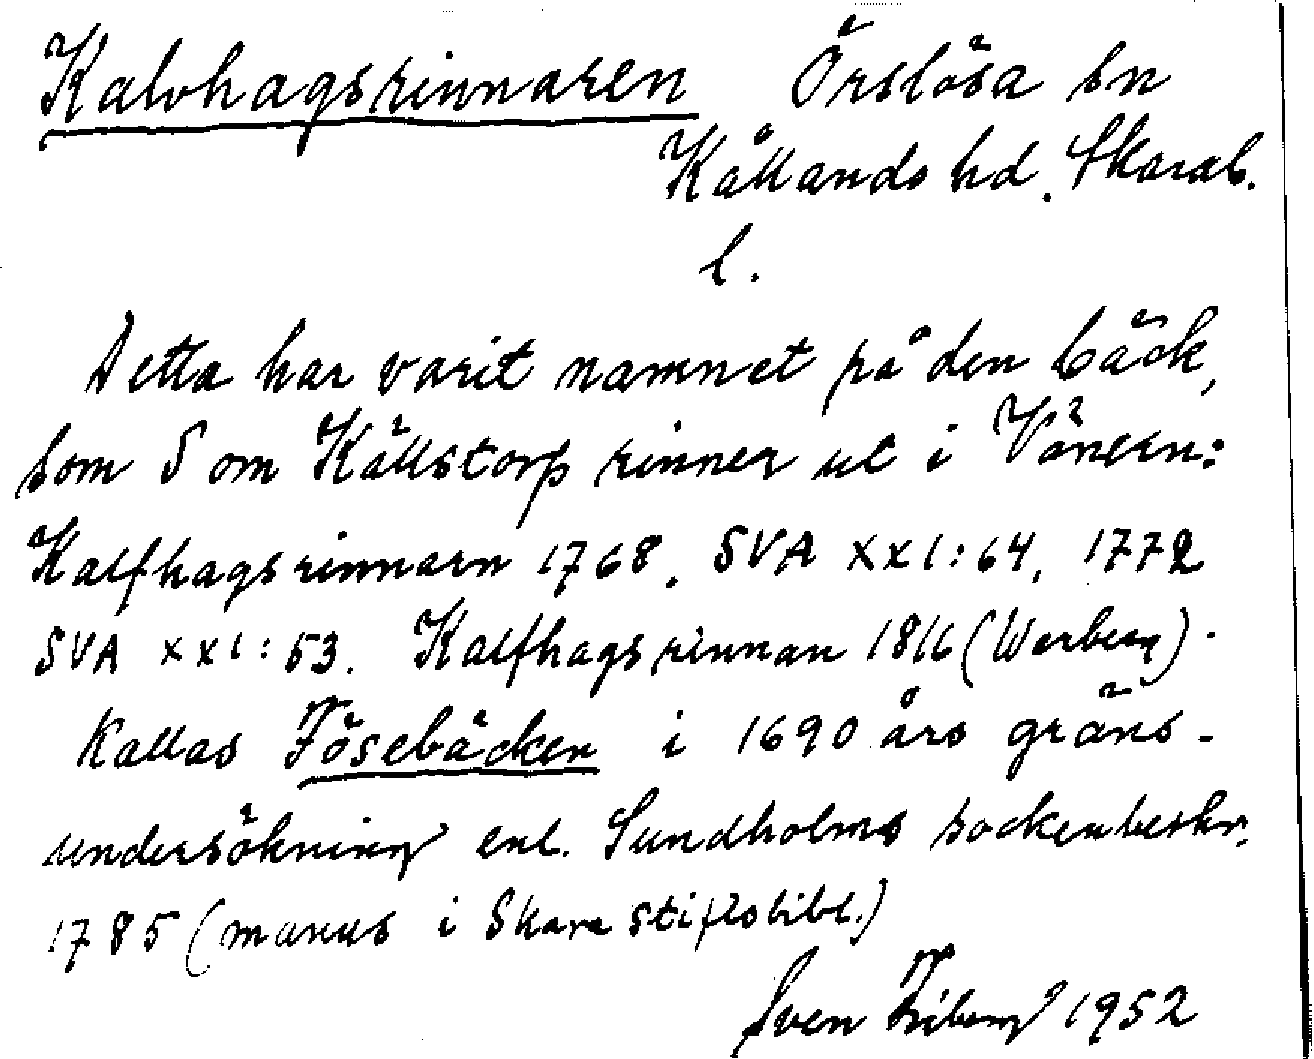 Kalvhagsrinnaren Örslösa sn
Kållands hd. Skarab.
l.
Detta har varit namnet på den bäck,
som S om Källstorp rinner ut i Vänern:
Kalfhagsrinnarn 1768. SVA XXI:64, 1772
SVA XXI:53. Kalfhagsrinnan 1816 (Warberg).
Kallas Fösebäcken i 1690 års gräns-
undersökning enl. Sundholms sockenbeskr.
1785 (manus i Skara stiftsbibl.)
Sven Friberg 1952